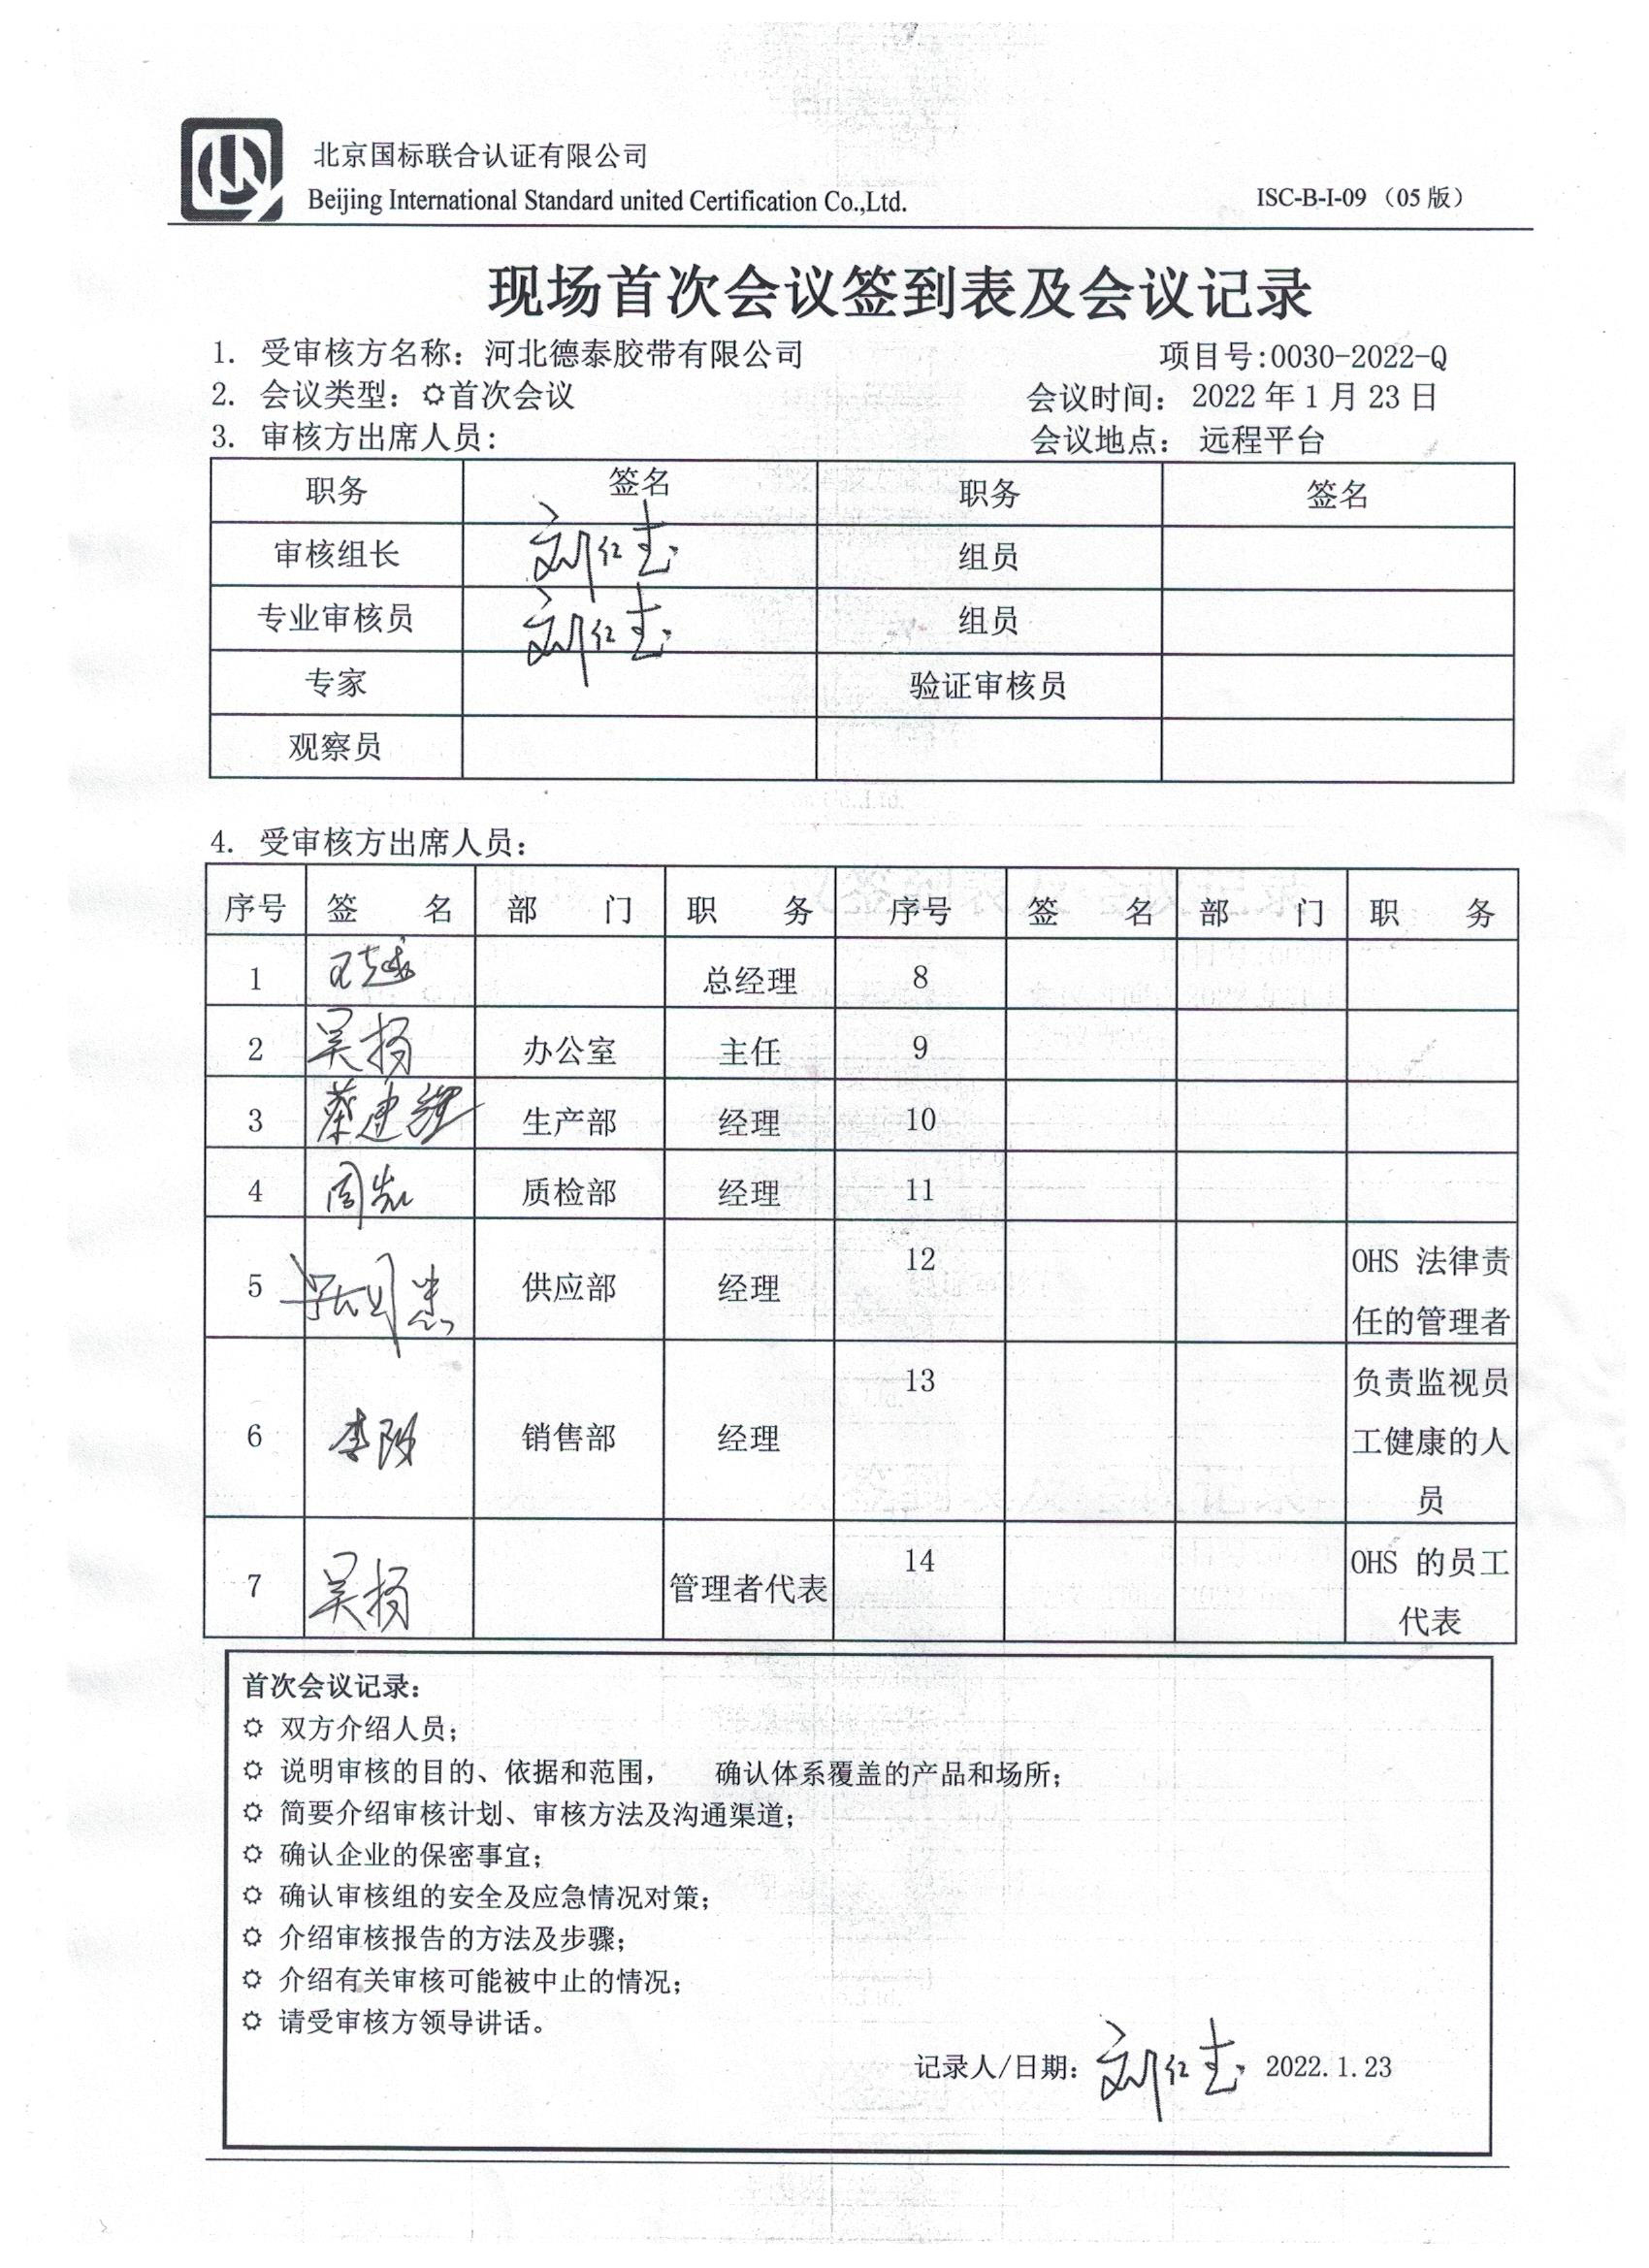 北京国标联合认证有限公司
Beijing International Standard united Certification Co.,Ltd.
ISC-B-I-09 （05 版）
现场首次会议签到表及会议记录
1. 受审核方名称：河北德泰胶带有限公司 项目号:0030-2022-Q
2. 会议类型：首次会议 会议时间： 2022 年 1 月 23 日
3. 审核方出席人员： 会议地点： 远程平台
职务 签名 职务 签名
审核组长 组员
专业审核员 组员
专家 验证审核员
观察员
4. 受审核方出席人员：
序号 签 名 部 门 职 务 序号 签 名 部 门 职 务
1 总经理 8
2 吴扬 办公室 主任 9
3 蔡建辉 生产部 经理 10
4 质检部 经理 11
5 供应部 经理 12 OHS 法律责
任的管理者
6 销售部 经理 13 负责监视员
工健康的人
员
7 吴扬 管理者代表 14 OHS 的员工
代表
首次会议记录：
双方介绍人员；
说明审核的目的、依据和范围， 确认体系覆盖的产品和场所；
简要介绍审核计划、审核方法及沟通渠道；
确认企业的保密事宜；
确认审核组的安全及应急情况对策；
介绍审核报告的方法及步骤；
介绍有关审核可能被中止的情况；
请受审核方领导讲话。
记录人/日期： 2022.1.23